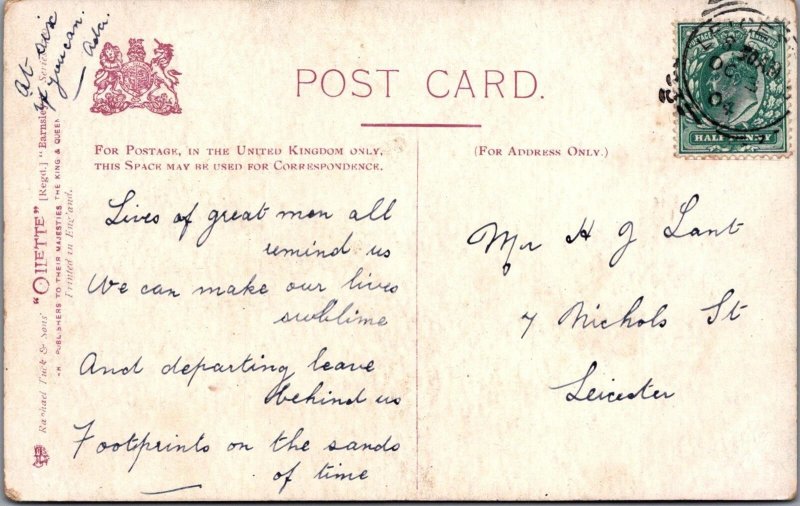 At six
if you can.
Ada.
POST CARD.
FOR POSTAGE, IN THE UNITED KINGDOM ONLY,
THIS SPACE MAY BE USED FOR CORRESPONDENCE.
(FOR ADDRESS ONLY.)
HALFPENNY
Lives of great men all
remind us
We can make our lives
sublime
And departing leave
behind us
Footprints on the sands
of time
Mr H J Lant
7 Nichols St
Leicester
Raphael Tuck & Sons' "OILETTE" [Regd.] "Earnsle
PUBLISHERS TO THEIR MAJESTIES THE KING & QUEEN
Printed in England.